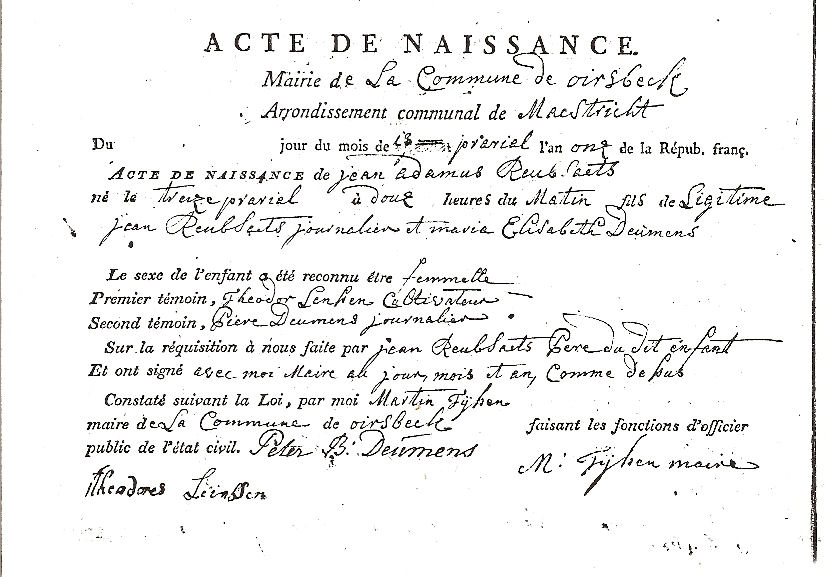 ACTE DE NAISSANCE.
Mairie de La Commune de oirsbeck
Arrondissement communal de Maestricht
Du jour du mois de 13 prarial l'an onz de la Répub. franç.
ACTE DE NAISSANCE de jean adamus Reubsaets
né le treize prarial à douz heures du Matin fils de Ligitime
jean Reubsaets journalier et maria Elisabeth Deumens
Le sexe de l'enfant a été reconnu être femmelle
Premier témoin, Theodor Lenhen Cultivateur
Second témoin, Piere Deumens journalier
Sur la réquisition à nous faite par jean Reubsaets Pere du dit enfant
Et ont signé avec moi Maire au jour, mois et an, Comme de sus
Constaté suivant la Loi, par moi Martin Tijhen
maire de La Commune de oirsbeck faisant les fonctions d'officier
public de l'état civil. Peter B: Deümens
M: Tijhen maire
Theodores